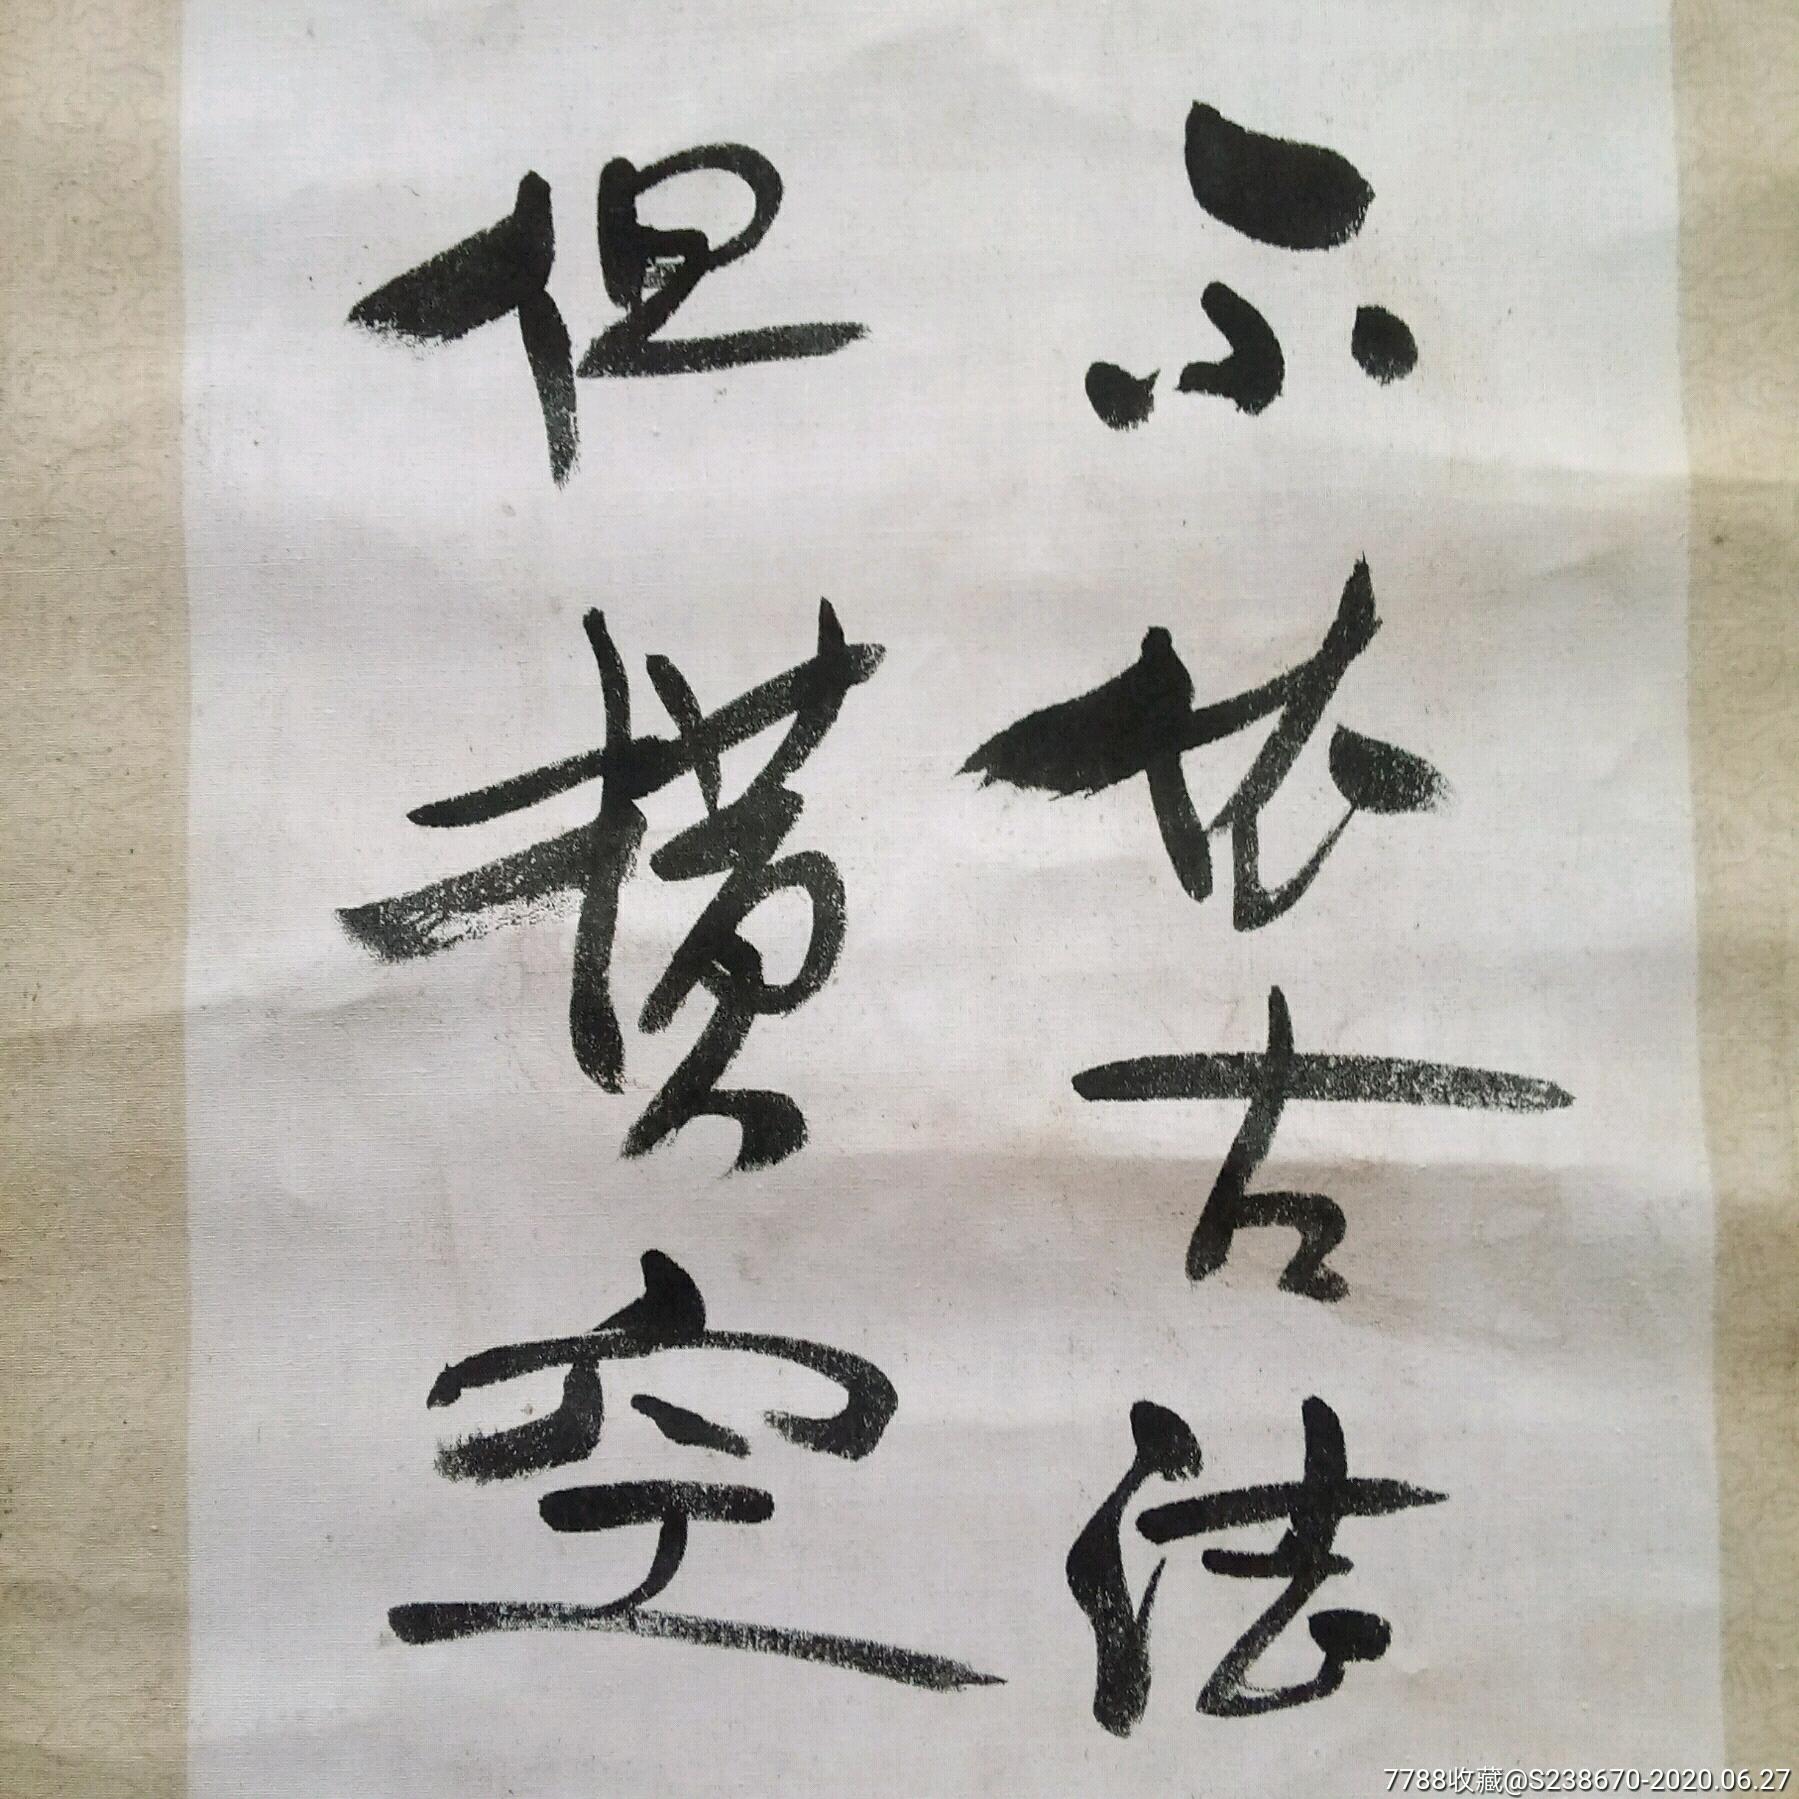 不依古法
但横空
7788收藏@S238670-2020.06.27